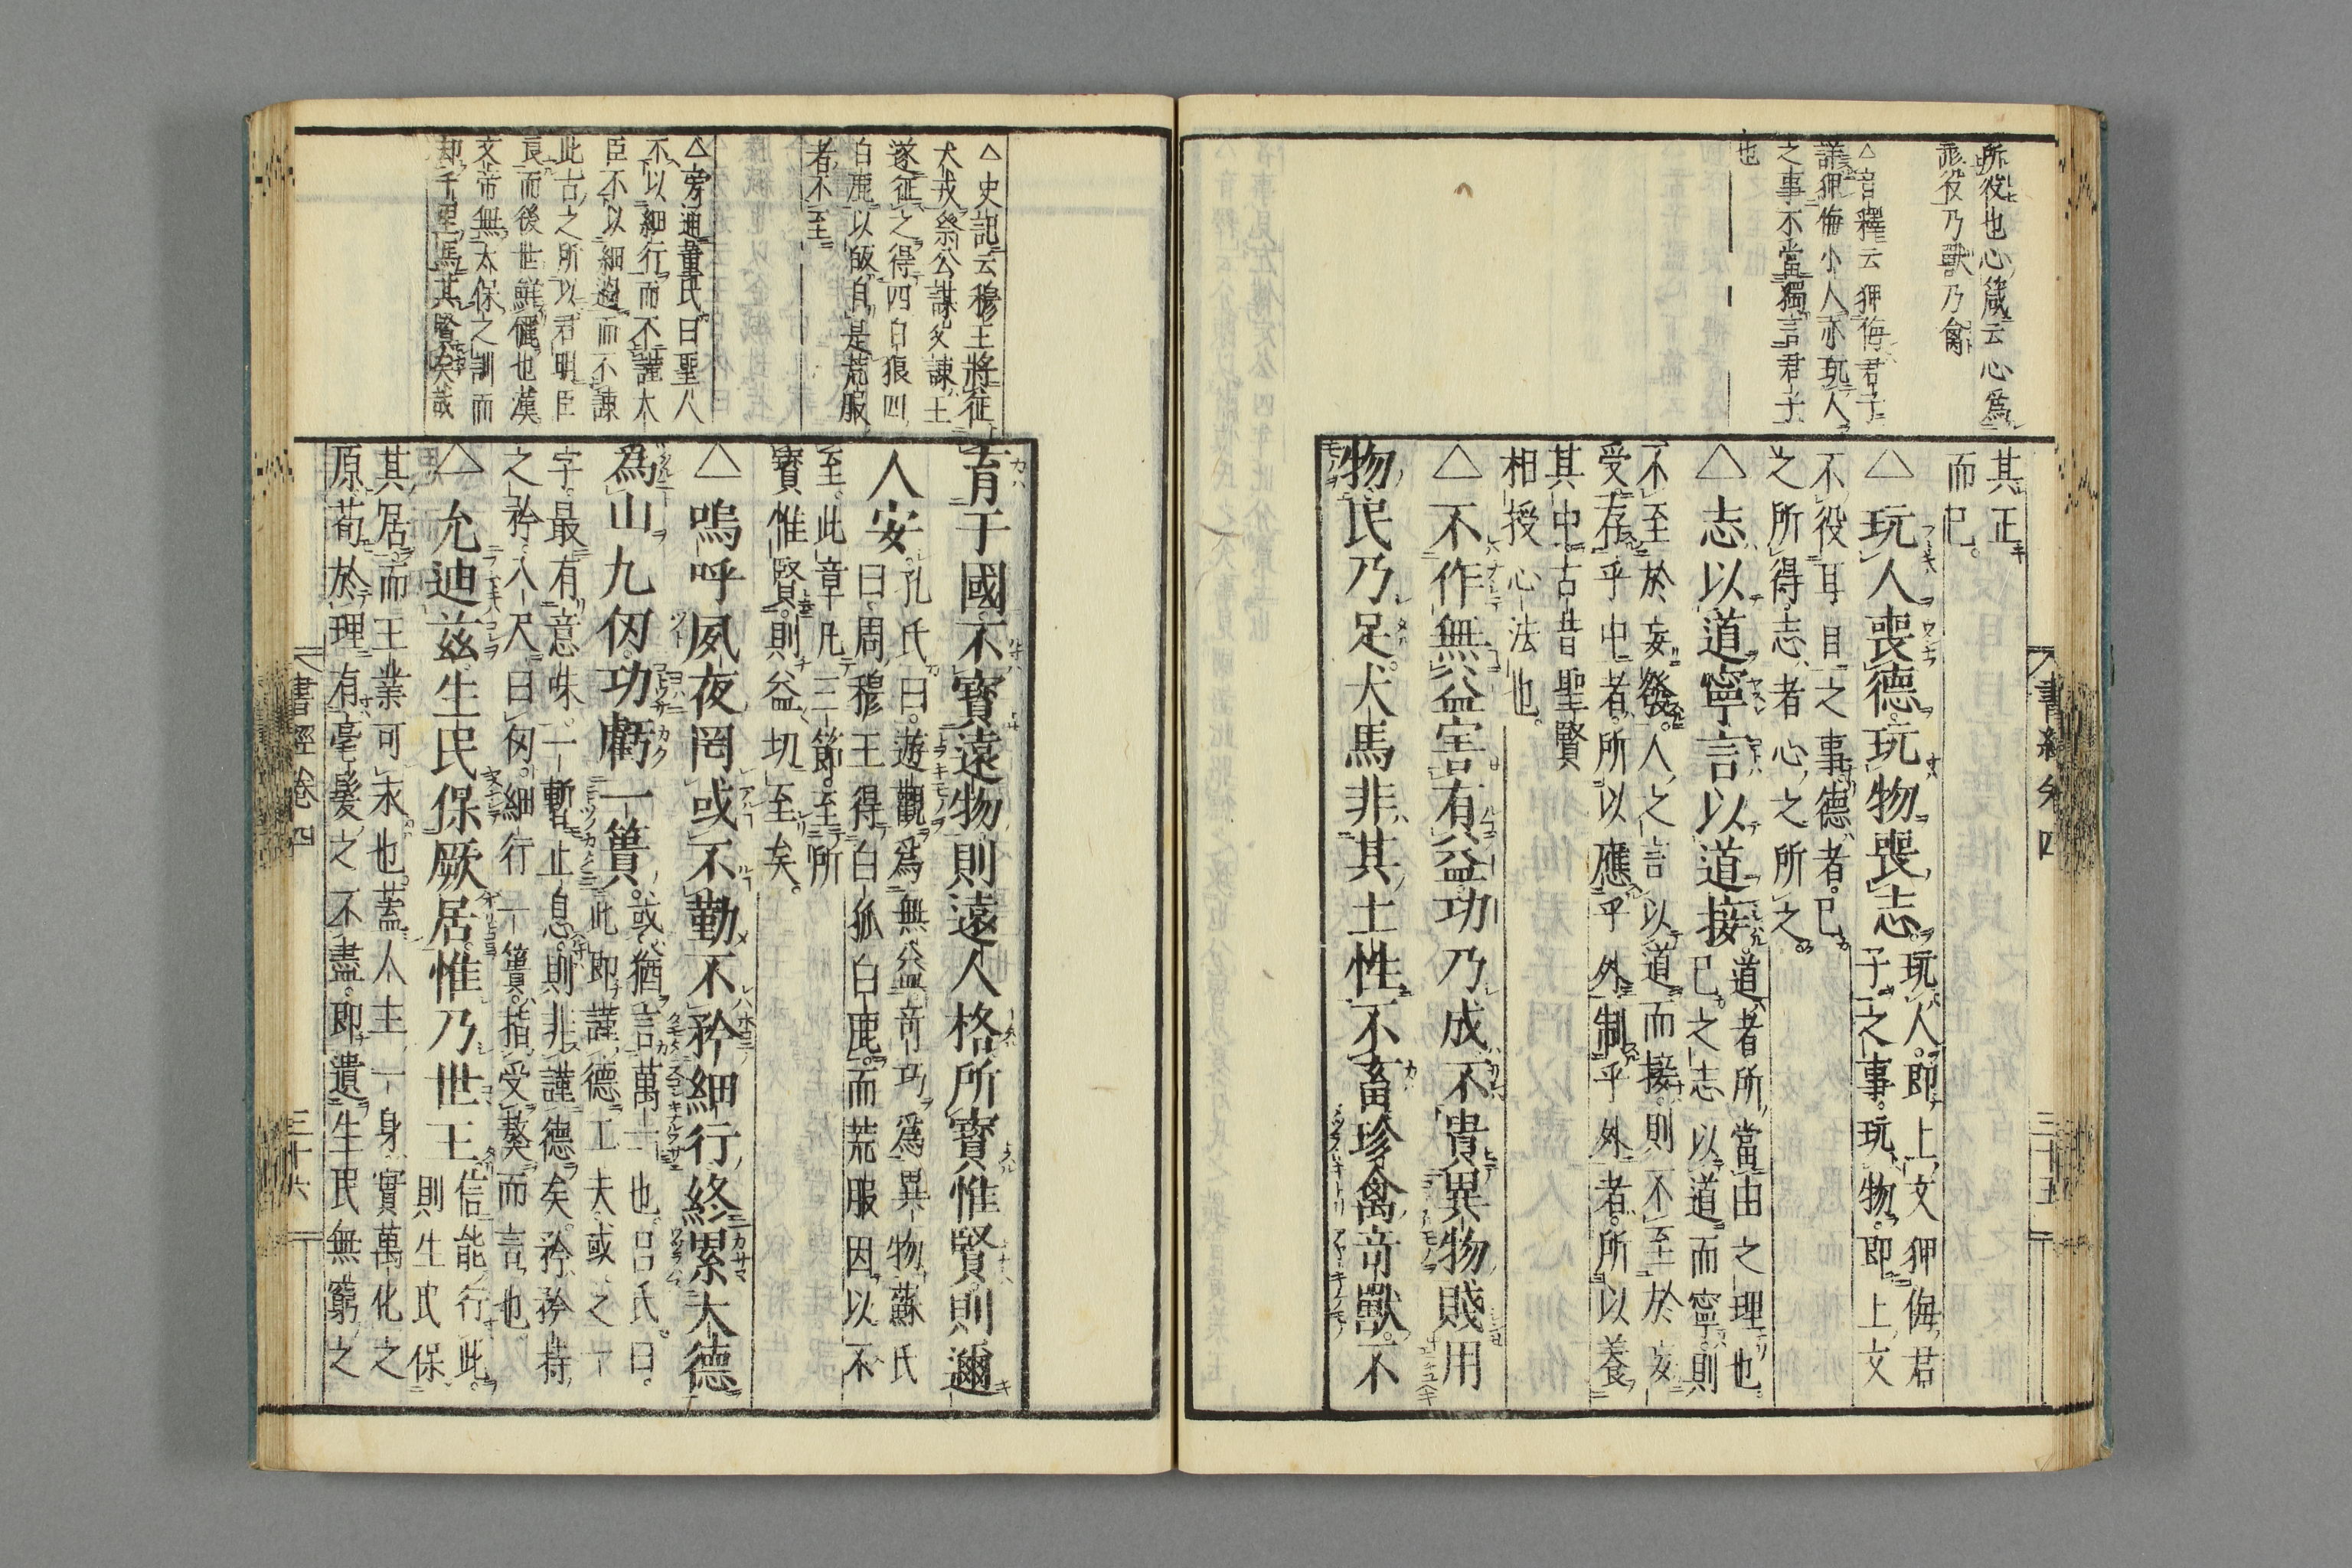 所役也心箴云心為
形役乃獸乃禽
△音釋云狎侮君子
詳狎侮小人亦玩人
之事不當獨言君子
也
其正
而已。
△玩人喪德。玩物喪志。
玩人。即上文狎侮君
子之事。玩物。即上文
不役耳目之事。德者。己
之所得。志者心之所之。
△志以道寧。言以道接
道者所當由之理也。
己之志以道而寧。則
不至於妄發。人之言以道而接。則不至於妄
受。存乎中者。所以應乎外。制乎外者。所以養
其中。古昔聖賢
相授心法也。
△不作無益害有益。功乃成。不貴異物賤用
物。民乃足。犬馬非其土性不畜。珍禽奇獸。不
書經卷四
三十五
△史記云穆王將征
犬戎祭公謀父諫王
遂征之得四白狼四
白鹿以皈自是荒服
者不至
△旁通董氏曰聖人
不以細行而不謹大
臣不以細過而不諫
此古之所以君明臣
良而後世鮮儷也漢
文帝無太保之訓而
却千里馬其賢矣哉
育于國。不寶遠物則遠人格。所寶惟賢。則邇
人安。
孔氏曰。遊觀為無益。奇巧為異物。蘇氏
曰。周穆王得白狐白鹿。而荒服因以不
至。此章凡三節。至所
寶惟賢。則益切至矣。
△嗚呼夙夜罔或不勤。不矜細行。終累大德。
為山九仞。功虧一簣。
或。猶言萬一也。呂氏。曰。
此即謹德工夫。或之一
字。最有意味。一暫止息。則非謹德矣。矜。矜持
之矜。八尺曰仞。細行一簣。指受獒而言也。
△允迪茲。生民保厥居。惟乃世王。
信能行此。
則生民保
其居。而王業可永也。蓋人主一身。實萬化之
原。苟於理有毫髮之不盡。即遺生民無窮之
書經卷四
三十六